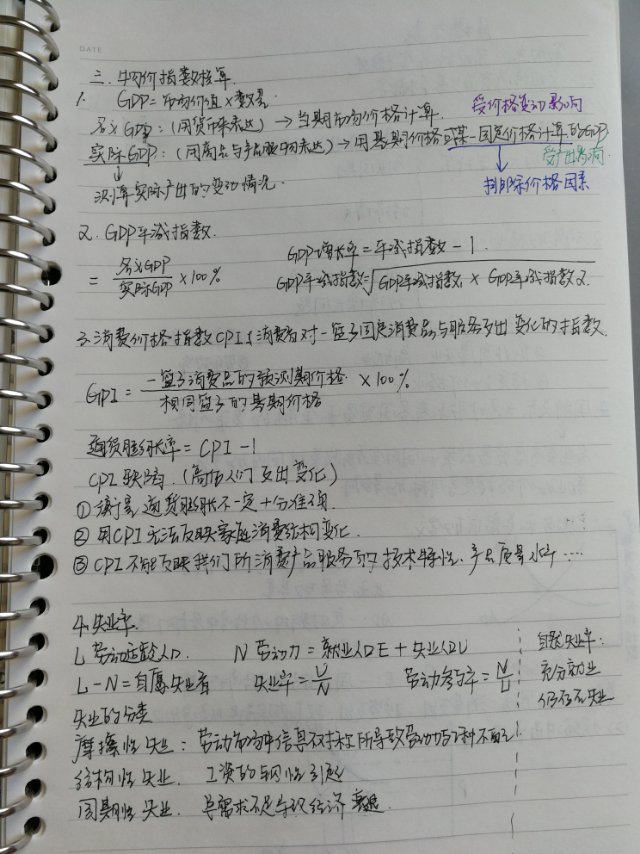 DATE
二. 物价指数核算.
1. GDP = 市场价值 × 数量
受价格变动影响
名义GDP:(用货币来表达) → 当期市场价格计算.
实际GDP:(用商品与产品服务表达) → 用基期价格或某一固定价格计算的GDP
受产出影响
测算实际产出的变动情况.
扣除价格因素
2. GDP平减指数.
GDP增长率 = 平减指数 - 1.
= 名义GDP/实际GDP × 100%
GDP平减指数 = √GDP平减指数1 × GDP平减指数2.
3. 消费价格指数CPI: 消费者对一篮子固定消费品与服务支出变化的指数.
CPI = 一篮子消费品的预测期价格/相同篮子的基期价格 × 100%
通货膨胀率 = CPI - 1
CPI缺陷. (高估人们支出变化)
① 衡量通货膨胀不一定十分准确.
② 用CPI无法反映家庭消费结构变化.
③ CPI不能反映我们所消费产品服务的技术特性、产品质量水平 ....
4. 失业率.
L 劳动适龄人口. N 劳动力 = 就业人口E + 失业人口U
自然失业率:
L - N = 自愿失业者 失业率 = U/N 劳动参与率 = N/L
充分就业
仍存在失业
失业的分类
摩擦性失业: 劳动市场中信息不对称所导致劳动场所种不匹配
结构性失业. 工资的刚性引起
周期性失业. 总需求不足导致经济衰退.